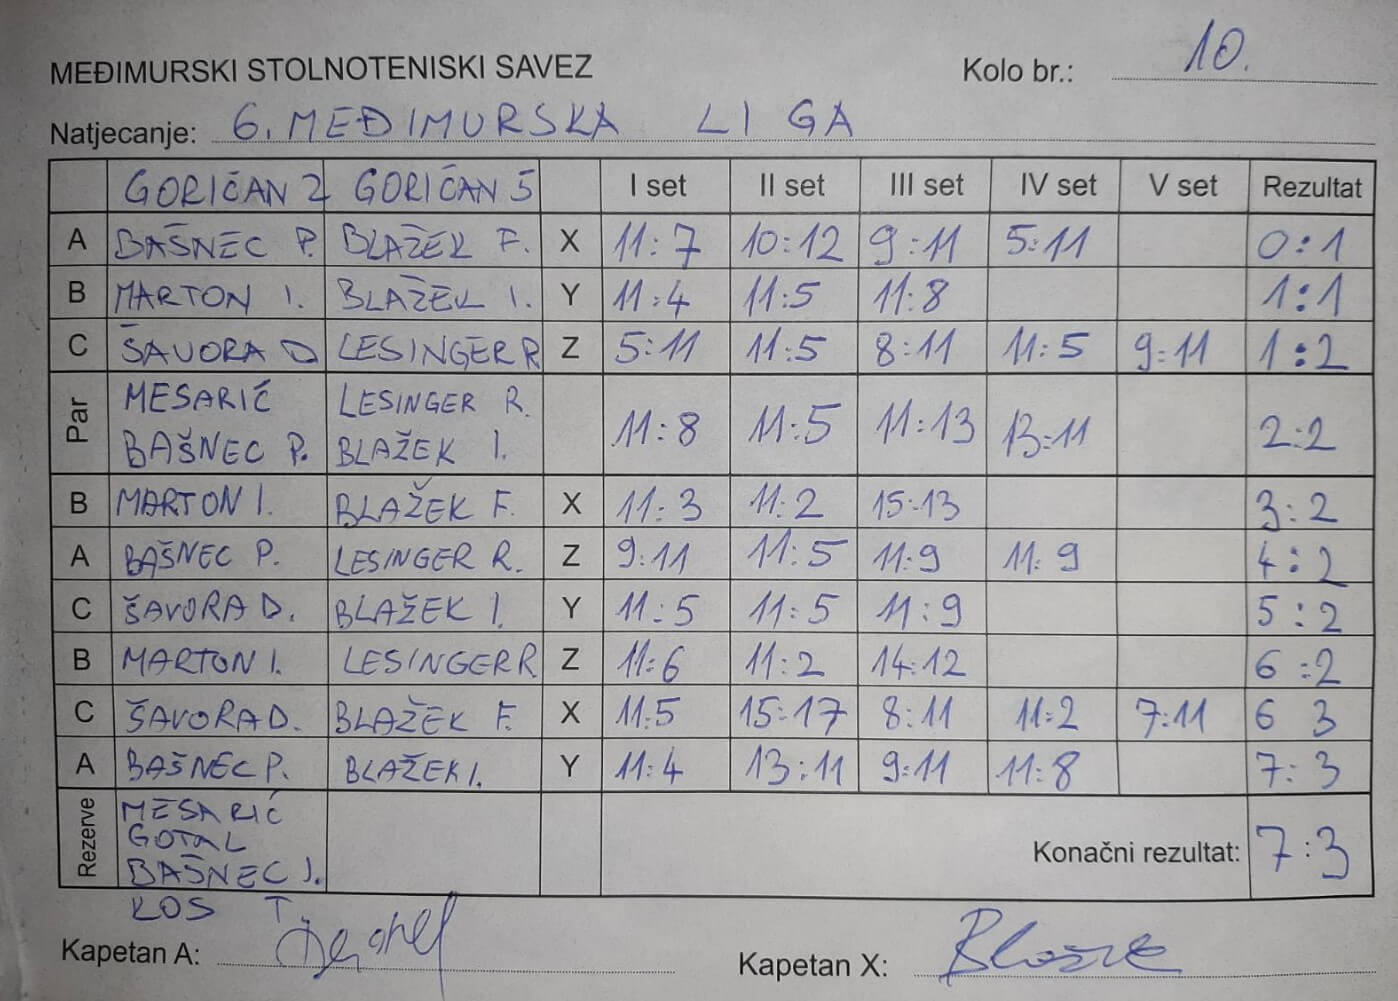 MEĐIMURSKI STOLNOTENISKI SAVEZ Kolo br.: 10.
Natjecanje: 6. MEĐIMURSKA LIGA
GORIČAN 2 GORIČAN 5 I set II set III set IV set V set Rezultat
A BAŠNEC P. BLAŽEK F. X 11:7 10:12 9:11 5:11 0:1
B MARTON I. BLAŽEK I. Y 11:4 11:5 11:8 1:1
C ŠAVORA D LESINGER R Z 5:11 11:5 8:11 11:5 9:11 1:2
Par MESARIĆ LESINGER R.
BAŠNEC P. BLAŽEK I. 11:8 11:5 11:13 13:11 2:2
B MARTON I. BLAŽEK F. X 11:3 11:2 15:13 3:2
A BAŠNEC P. LESINGER R. Z 9:11 11:5 11:9 11:9 4:2
C ŠAVORA D. BLAŽEK I. Y 11:5 11:5 11:9 5:2
B MARTON I. LESINGER R Z 11:6 11:2 14:12 6:2
C ŠAVORA D. BLAŽEK F. X 11:5 15:17 8:11 11:2 7:11 6 3
A BAŠNEC P. BLAŽEK I. Y 11:4 13:11 9:11 11:8 7:3
Rezerve MESARIĆ
GOTAL
BAŠNEC J.
KOS T.
Konačni rezultat: 7:3
Kapetan A: Kapetan X: